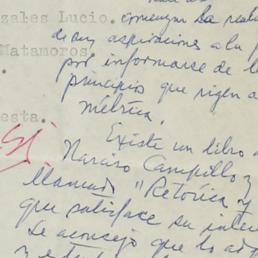 zales Lucio.
comienzan la reali
de sus aspiraciones a la p
Matamoros.
por informarse de l
principios que rigen a
métrica.
esta.
Existe un libro d
Sí
Narciso Campillo y
llamado "Retórica y
que satisface su inter
Le aconsejo que lo ad